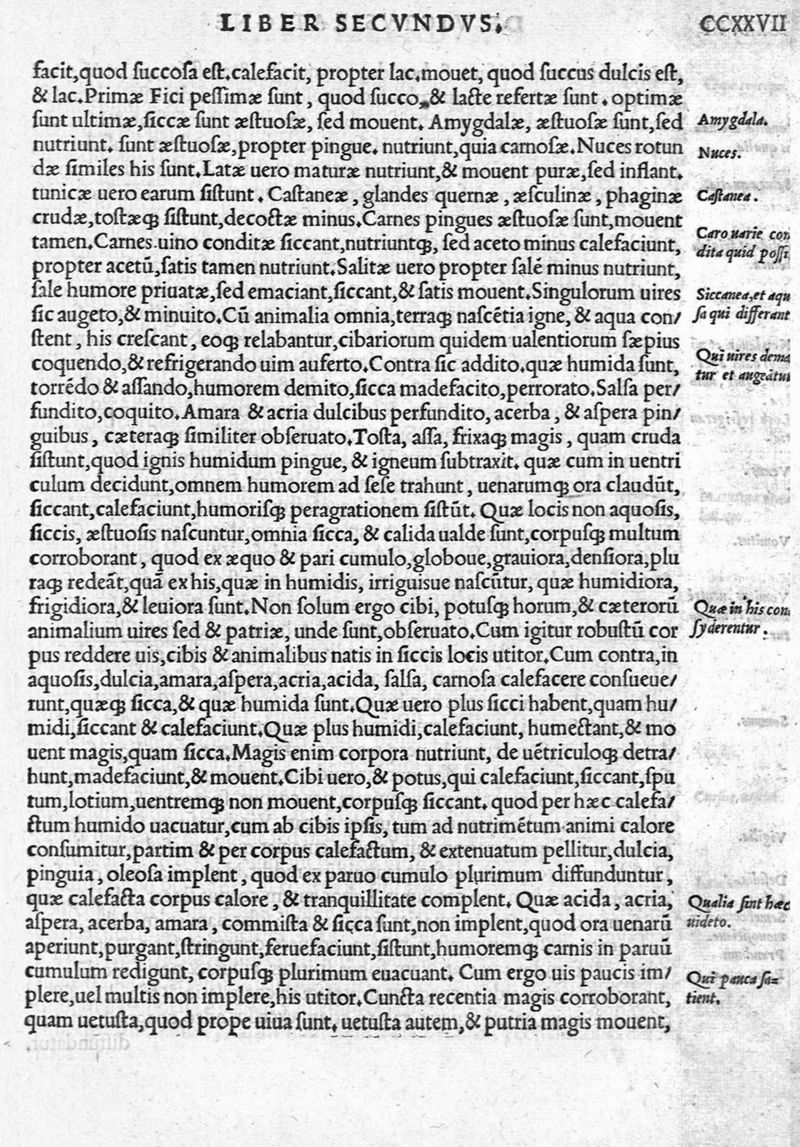 LIBER SECVNDVS.
CCXXVII
facit,quod ſuccoſa eſt.calefacit, propter lac.mouet, quod ſuccus dulcis eſt,
& lac.Primæ Fici peſſimæ ſunt, quod ſucco,& lacte refertæ ſunt. optimæ
ſunt ultimæ,ſiccæ ſunt æſtuoſæ, ſed mouent. Amygdalæ, æſtuoſæ ſunt,ſed
nutriunt. ſunt æſtuoſæ,propter pingue. nutriunt,quia carnoſæ.Nuces rotun
dæ ſimiles his ſunt.Latæ uero maturæ nutriunt,& mouent puræ,ſed inflant.
tunicæ uero earum ſiſtunt. Caſtaneæ, glandes quernæ, æſculinæ, phaginæ
crudæ,toſtæꝗ ſiſtunt,decoctæ minus.Carnes pingues æſtuoſæ ſunt,mouent
tamen.Carnes uino conditæ ſiccant,nutriuntꝗ, ſed aceto minus calefaciunt,
propter acetũ,ſatis tamen nutriunt.Salitæ uero propter ſalé minus nutriunt,
ſale humore priuatæ,ſed emaciant,ſiccant,& ſatis mouent.Singulorum uires
ſic augeto,& minuito.Cũ animalia omnia,terraꝗ naſcẽtia igne, & aqua con/
ſtent, his creſcant, eoꝗ relabantur,cibariorum quidem ualentiorum ſæpius
coquendo,& refrigerando uim auferto.Contra ſic addito.quæ humida ſunt,
torrẽdo & aſſando,humorem demito,ſicca madefacito,perrorato.Salſa per/
fundito,coquito.Amara & acria dulcibus perfundito, acerba, & aſpera pin/
guibus, cæteraꝗ ſimiliter obſeruato.Toſta, aſſa, frixaꝗ magis, quam cruda
ſiſtunt,quod ignis humidum pingue, & igneum ſubtraxit. quæ cum in uentri
culum decidunt,omnem humorem ad ſeſe trahunt, uenarumꝗ ora claudũt,
ſiccant,calefaciunt,humoriſꝗ peragrationem ſiſtũt. Quæ locis non aquoſis,
ſiccis, æſtuoſis naſcuntur,omnia ſicca, & calida ualde ſunt,corpuſꝗ multum
corroborant, quod ex æquo & pari cumulo,globoue,grauiora,denſiora,plu
raꝗ redeãt,quã ex his,quæ in humidis, irriguisue naſcũtur, quæ humidiora,
frigidiora,& leuiora ſunt.Non ſolum ergo cibi, potuſꝗ horum,& cæterorũ
animalium uires ſed & patriæ, unde ſunt,obſeruato.Cum igitur robuſtũ cor
pus reddere uis,cibis & animalibus natis in ſiccis locis utitor.Cum contra,in
aquoſis,dulcia,amara,aſpera,acria,acida, ſalſa, carnoſa calefacere conſueue/
runt,quæꝗ ſicca,& quæ humida ſunt.Quæ uero plus ſicci habent,quam hu/
midi,ſiccant & calefaciunt.Quæ plus humidi,calefaciunt, humectant,& mo
uent magis,quam ſicca.Magis enim corpora nutriunt, de uẽtriculoꝗ detra/
hunt,madefaciunt,& mouent.Cibi uero,& potus,qui calefaciunt,ſiccant,ſpu
tum,lotium,uentremꝗ non mouent,corpuſꝗ ſiccant. quod per hæc calefa/
ctum humido uacuatur,cum ab cibis ipſis, tum ad nutrimẽtum animi calore
conſumitur,partim & per corpus calefactum, & extenuatum pellitur,dulcia,
pinguia, oleoſa implent, quod ex paruo cumulo plurimum diffunduntur,
quæ calefacta corpus calore, & tranquillitate complent. Quæ acida, acria,
aſpera, acerba, amara, commiſta & ſicca ſunt,non implent,quod ora uenarũ
aperiunt,purgant,ſtringunt,feruefaciunt,ſiſtunt,humoremꝗ carnis in paruũ
cumulum redigunt, corpuſꝗ plurimum euacuant. Cum ergo uis paucis im/
plere,uel multis non implere,his utitor.Cuncta recentia magis corroborant,
quam uetuſta,quod prope uiua ſunt. uetuſta autem,& putria magis mouent,
Amygdala.
Nuces.
Caſtanea.
Caro uarie con
dita quid poſſi
Siccanea,et aqu
ſa qui differant
Qui uires dema
tur et augeãtur
Quæ in his con
ſyderentur.
Qualia ſint hæc
uideto.
Qui pauca ſa=
tient.